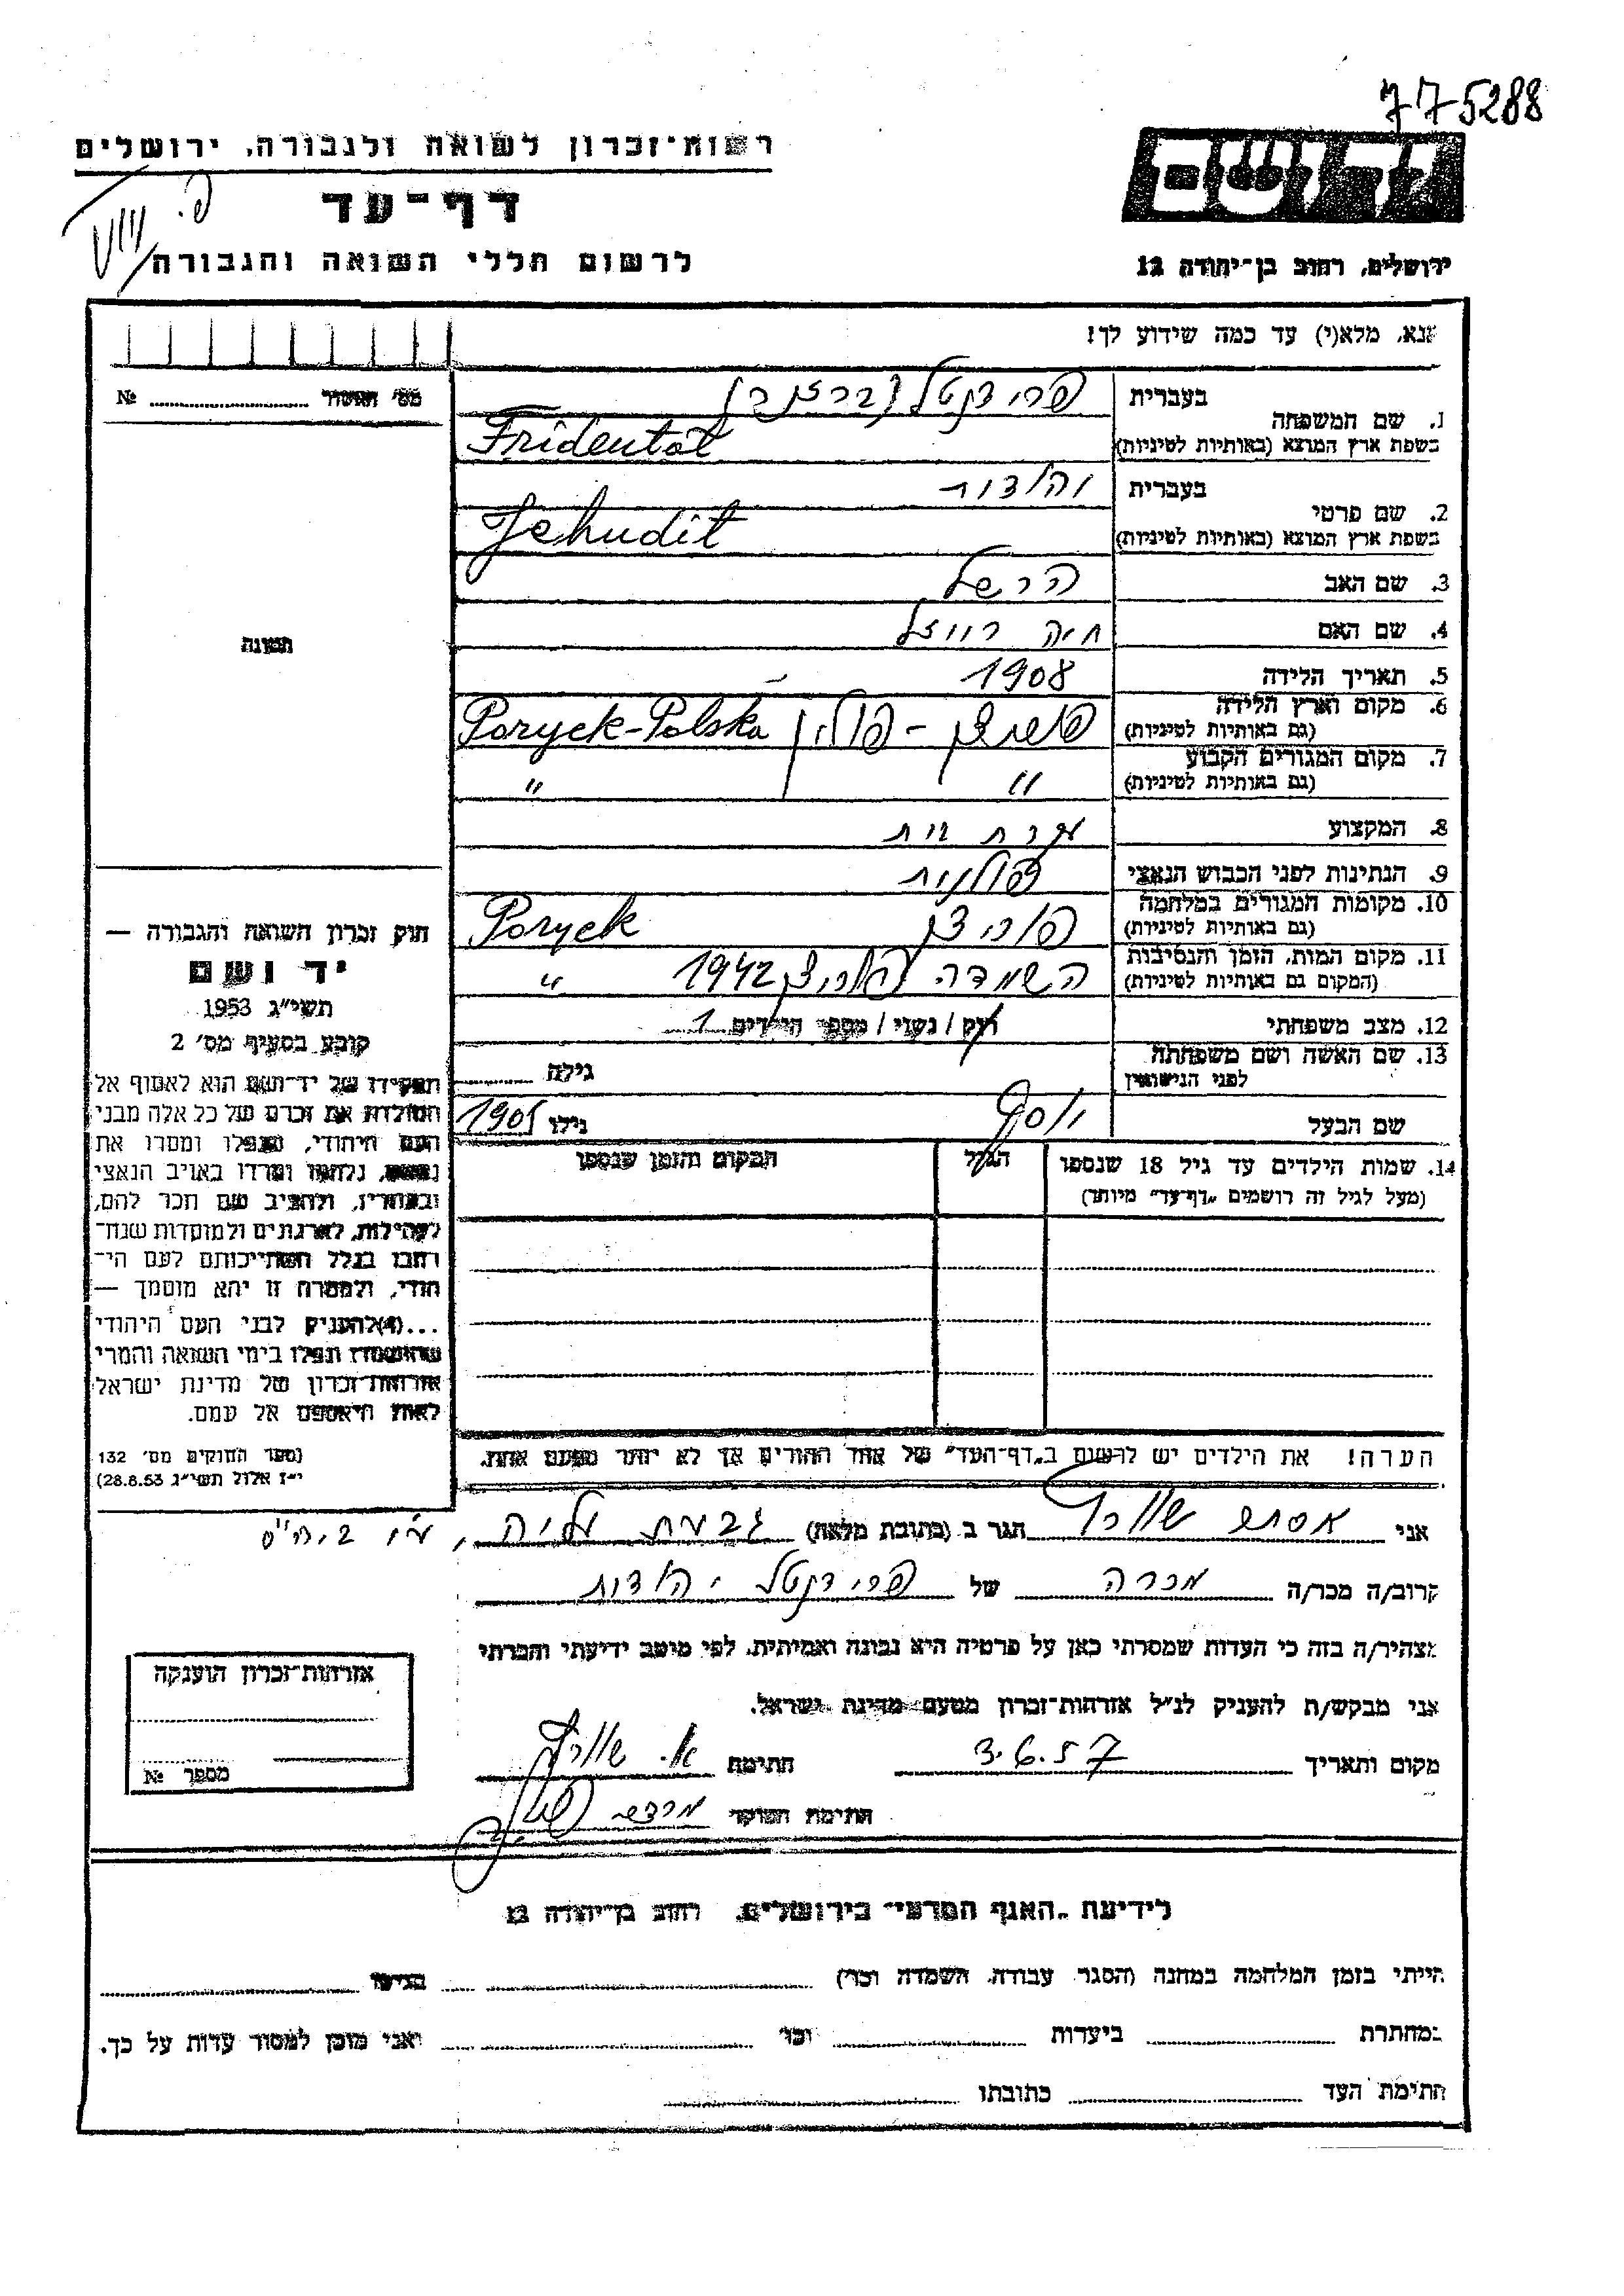 775288
רשות־זכרון לשואה ולגבורה, ירושלים
יד ושם
דף־עד
לרשום חללי השואה והגבורה
ירושלים, רחוב בן־יהודה 12
אנא, מלא(י) עד כמה שידוע לך!
מס׳ №
1. שם המשפחה
בעברית פרידנטל
בשפת ארץ המוצא (באותיות לטיניות) Fridental
2. שם פרטי
בעברית יהודית
בשפת ארץ המוצא (באותיות לטיניות) Jehudit
3. שם האב הרשל
4. שם האם חיה רויזל
5. תאריך הלידה 1908
6. מקום וארץ הלידה (גם באותיות לטיניות) פוריצק - פולין Poryck-Polska
7. מקום המגורים הקבוע (גם באותיות לטיניות) " "
8. המקצוע עקרת בית
9. הנתינות לפני הכבוש הנאצי פולנית
10. מקומות המגורים במלחמה (גם באותיות לטיניות) פוריצק Poryck
11. מקום המות, הזמן והנסיבות (המקום גם באותיות לטיניות) השמדה פוריצק 1942 "
12. מצב משפחתי רוק / נשוי / מספר הילדים 1
13. שם האשה ושם משפחתה לפני הנישואין גילה
שם הבעל יוסף גילו 1905
14. שמות הילדים עד גיל 18 שנספו (מעל לגיל זה רושמים „דף־עד” מיוחד)
הגיל
המקום והזמן שנספו
תמונה
חוק זכרון השואה והגבורה —
יד ושם
תשי״ג 1953
קובע בסעיף מס׳ 2
תפקידו של יד־ושם הוא לאסוף אל
המולדת את זכרם של כל אלה מבני
העם היהודי, שנפלו ומסרו את
נפשם, נלחמו ומרדו באויב הנאצי
ובעוזריו, ולהציב שם וזכר להם,
לקהילות, לארגונים ולמוסדות שנח־
רבו בגלל השתייכותם לעם הי־
הודי, ולמטרה זו יהא מוסמך —
...(4) להעניק לבני העם היהודי
שהושמדו ונפלו בימי השואה והמרי
אזרחות־זכרון של מדינת ישראל
לאות היאספם אל עמם.
(ספר החוקים מס׳ 132
י״ז אלול תשי״ג 28.8.53)
הערה! את הילדים יש לרשום ב„דף־העד” של אחד ההורים אך לא יותר מפעם אחת.
אני אסתר הגר ב (כתובת מלאה) גבעת עליה,
קרוב/ה מכר/ה מכרה של פרידנטל יהודית
מצהיר/ה בזה כי העדות שמסרתי כאן על פרטיה היא נכונה ואמיתית, לפי מיטב ידיעתי והכרתי
אני מבקש/ת להעניק לנ״ל אזרחות־זכרון מטעם מדינת ישראל.
מקום ותאריך 3.6.57 חתימה
חתימת הפוקד
אזרחות־זכרון הוענקה
מספר №
לידיעת „האגף המדעי” בירושלים, רחוב בן־יהודה 12
הייתי בזמן המלחמה במחנה (הסגר, עבודה, השמדה וכו׳) בגיטו
במחתרת ביערות וכו׳ ואני מוכן למסור עדות על כך.
חתימת העד כתובתו